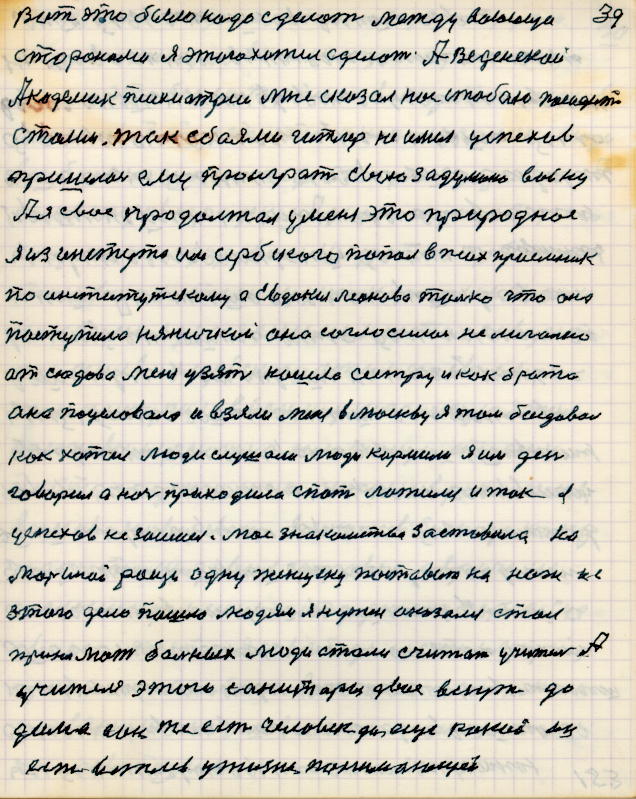 Вот это было надо сделот между ваюющя 39
сторонами я этогахотил сделот. А Веденской
Академик психиатрии мне сказал нос стобаю
стали. так сбаями гитлер не имел успехов
пришлося ему проиграт свою задумано войну
А я свое продолжал у меня это природное
я из инстытута им сербского попал в псих приемник
по институтскому а Евдокия леонова толко что она
поступила няничкой она согласилас
от сюдова меня узят нашла сестру и как брата
она поцеловала и взяли меня в москву я там беседовал
как хотел люди слушали люди кормили я им ден
говорил а ноч приходила спат ложился и так я
успехов не зашиел. мое знакомства заставила на
марйной рощи одну женщену поставит на ноги из
этого дело пошло людям я нужен оказался стал
принемат болных люди стали считат учител А
учителя этого санитары двое
дома он же ест человек да еще какой он
ест в жизни понимающей